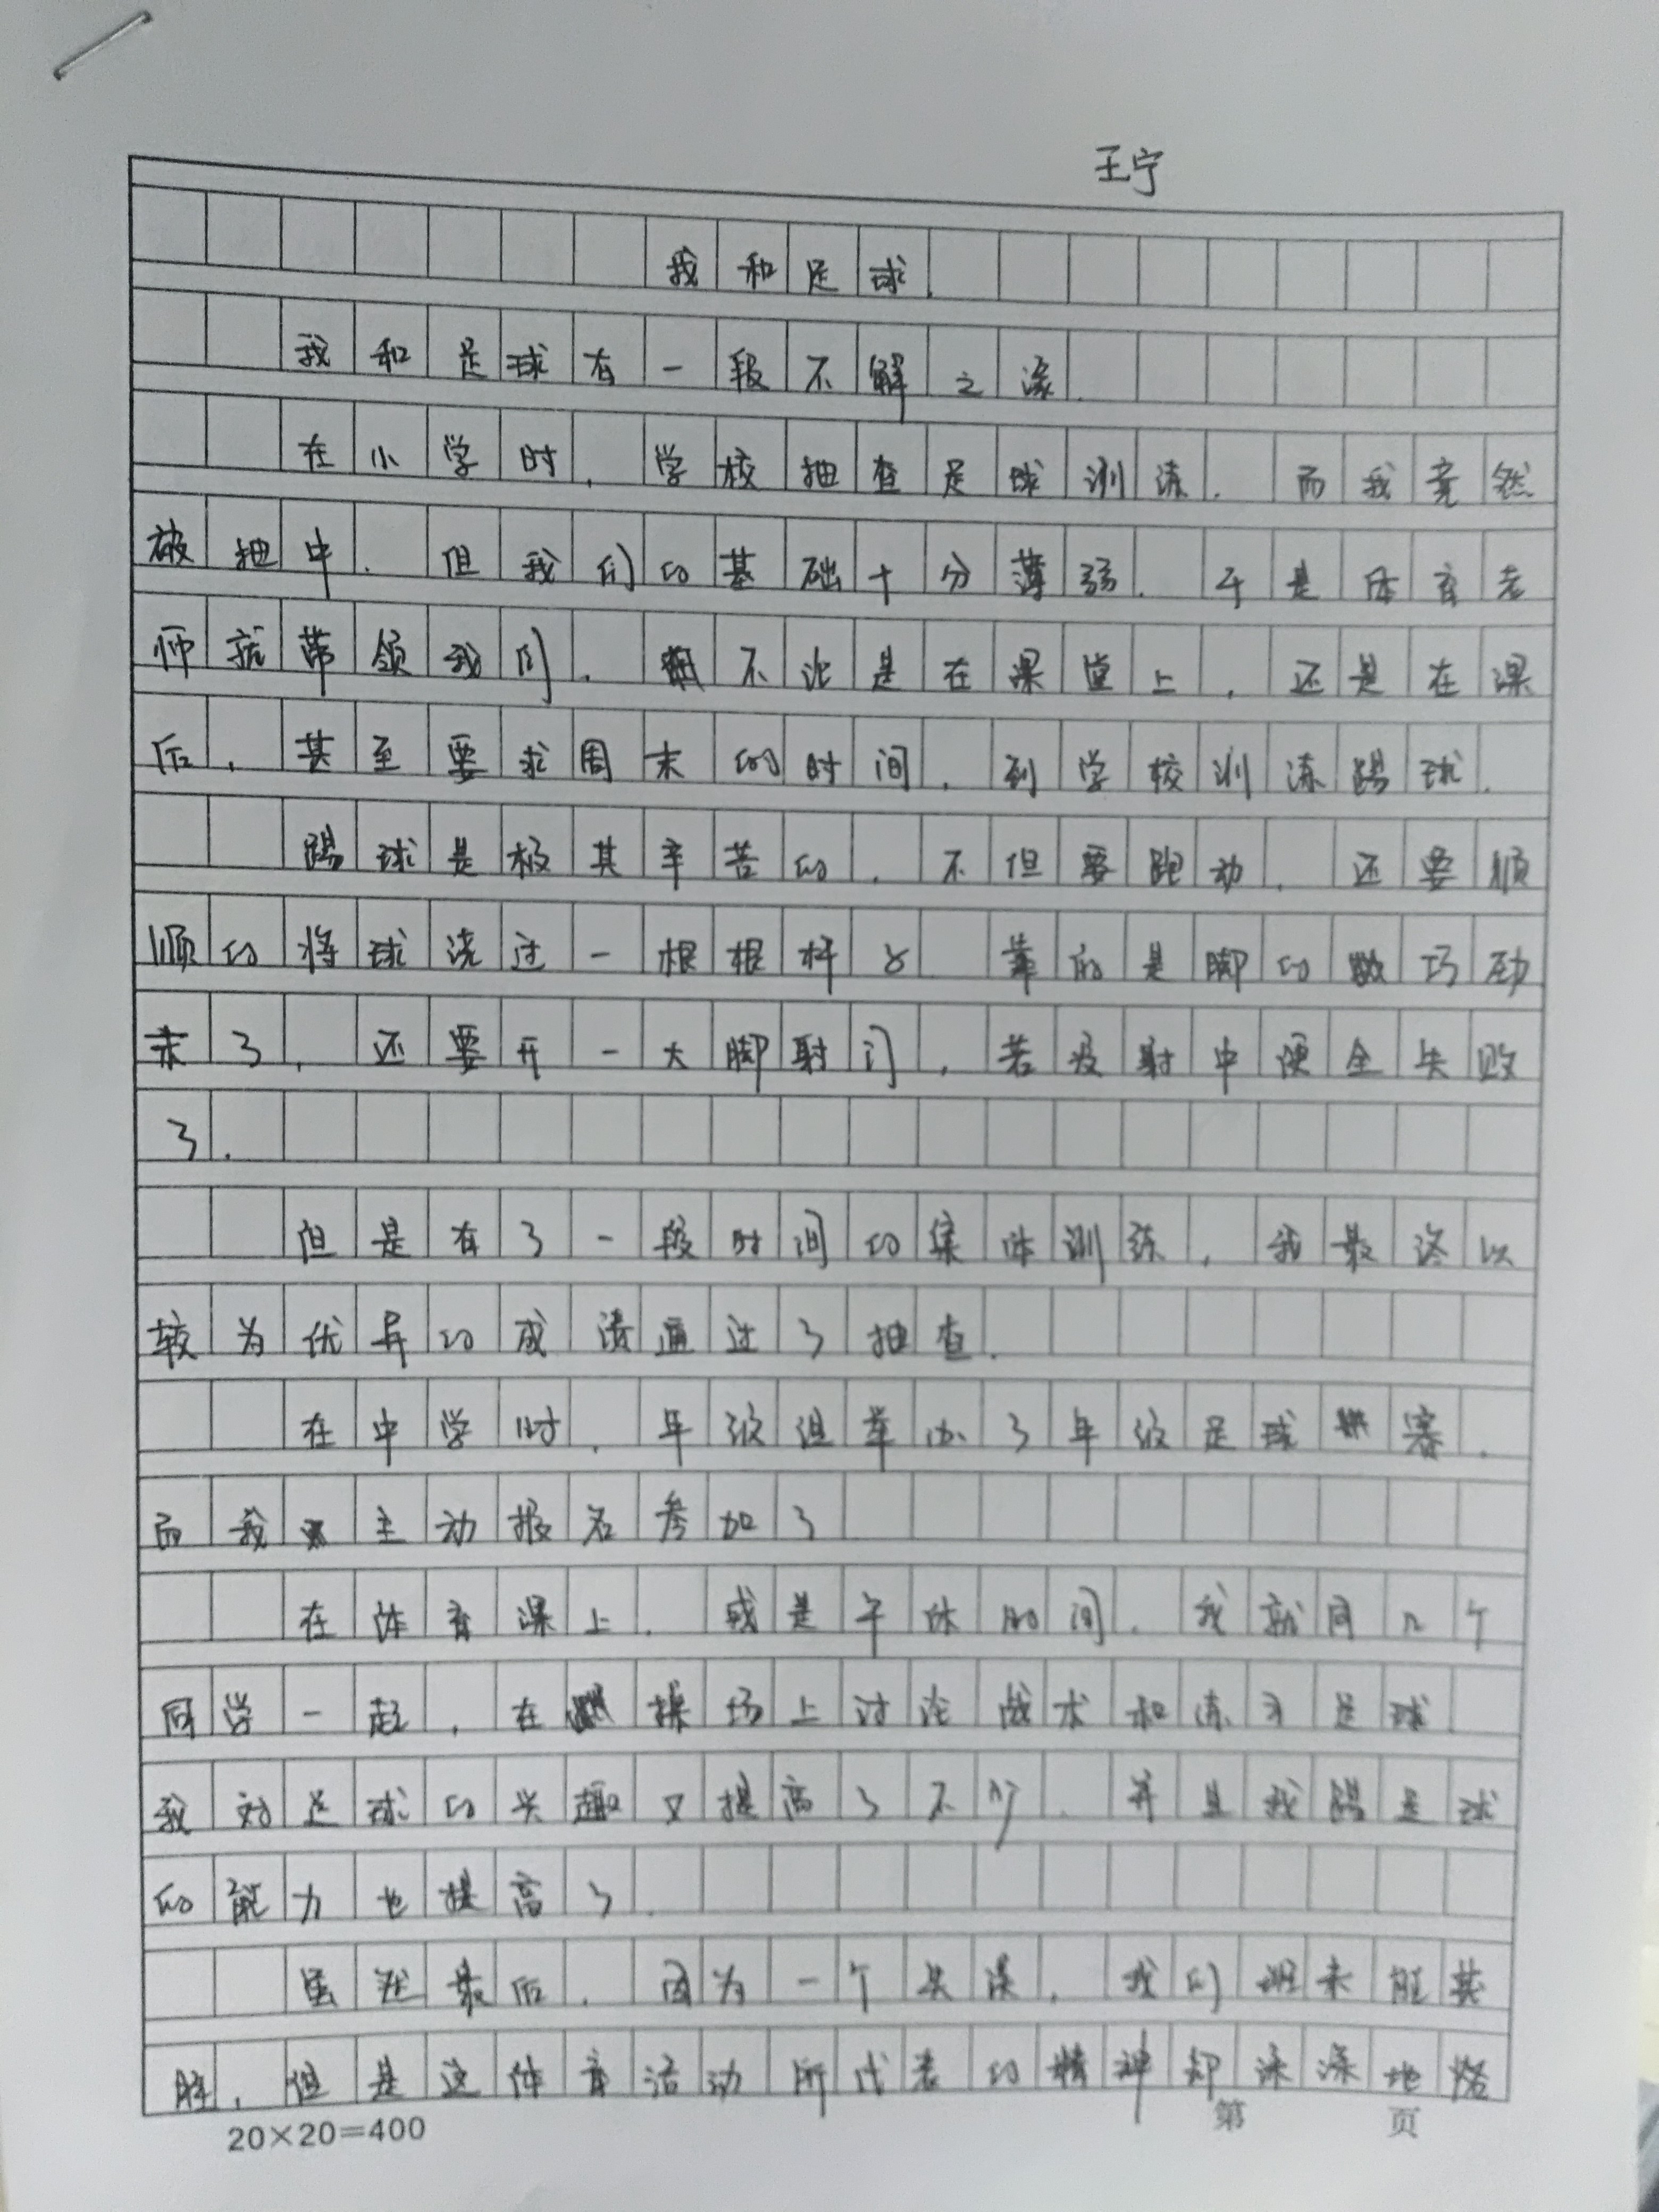 王宁
我和足球
我和足球有一段不解之缘.
在小学时,学校抽查足球训练.而我竟然
被抽中.但我们的基础十分薄弱.于是体育老
师就带领我们.不论是在课堂上,还是在课
后,甚至要求周末的时间,到学校训练踢球.
踢球是极其辛苦的.不但要跑动.还要顺
顺的将球绕过一根根杆子 靠的是脚的巧劲
来了,还要开一大脚射门,若没射中便全失败
了.
但是有了一段时间的集体训练,我最终以
较为优异的成绩通过了抽查.
在中学时,年级组举办了年级足球赛.
而我主动报名参加了
在体育课上.或是午休时间.我就同几个
同学一起,在操场上讨论战术和练习足球
我对足球的兴趣又提高了不少.并且我踢足球
的能力也提高了.
虽然最后,因为一个失误,我们班未能获
胜,但是这体育活动所代表的精神却深深地烙
20×20=400
第 页